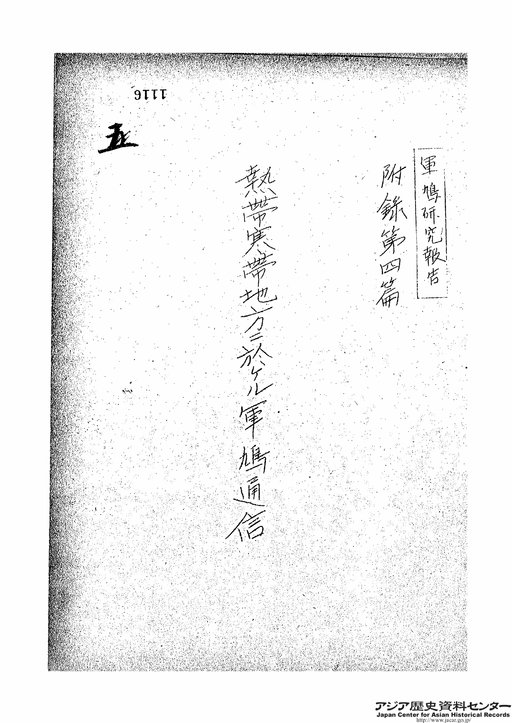 軍鳩研究報告
附錄第四篇
熱帶寒帶地方ニ於ケル軍鳩通信
1116
アジア歴史資料センター
Japan Center for Asian Historical Records
http://www.jacar.go.jp/